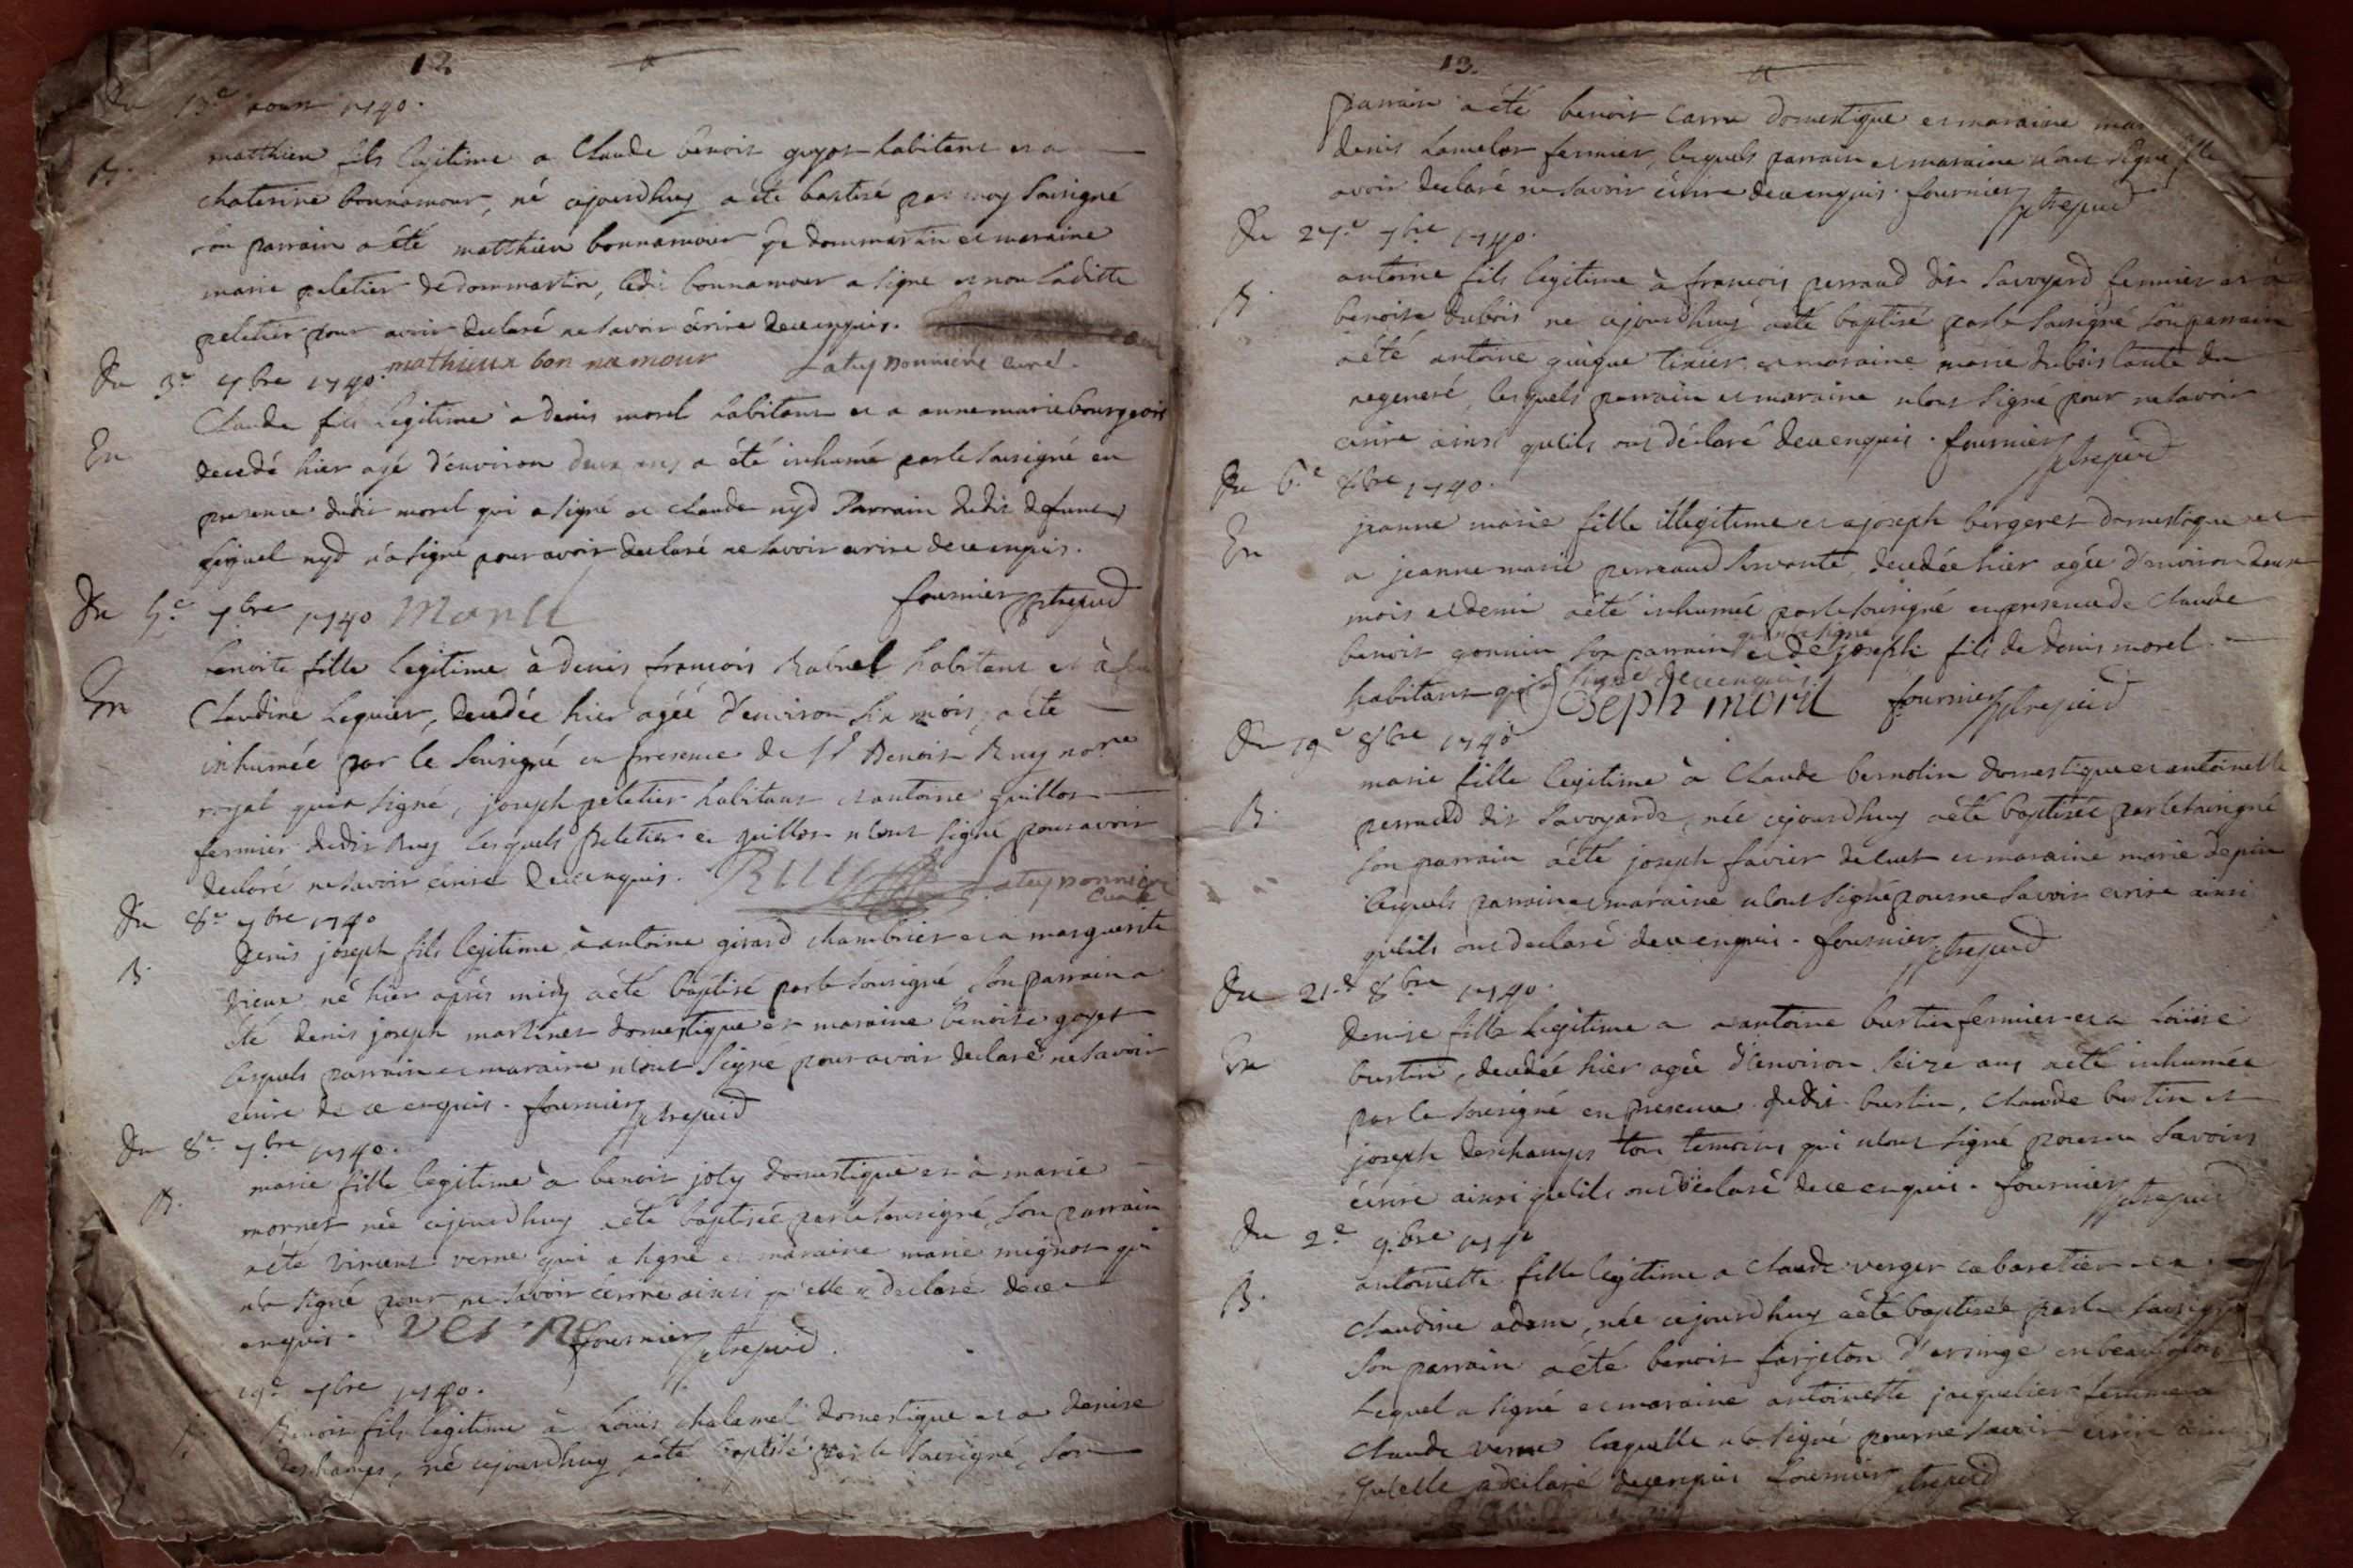 12
Du 13e aoust 1740.
B. matthieu fils legitime a Claude benoit guyot habitant et a
chaterine bonnamour, né cejourdhuy a été baptisé par moy sousigné
son parrain a été matthieu bonnamour de dommartin et maraine
marie peletier de dommartin, ledit bonnamour a signé et non laditte
peletier pour avoir declaré ne savoir écrire de ce enquis.
mathieux bon namour Latuyponniere curé.
Du 3e 7bre 1740.
Claude fils legitime a denis morel habitant et a anne marie bourgeois
En decedé hier agé d'environ deux ans a été inhumé par le sousigné en
presence dudit morel qui a signé et claude nyd Parrain dudit defunct
lequel nyd n'a signé pour avoir declaré ne savoir ecrire de ce enquis.
fournier ptre juré
Du 5e 7bre 1740 Morel
benoite fille legitime à denis françois habitant et à
En Claudine Lequier, decedée hier agée d'environ six mois, a été
inhumée par le sousigné en presence de Sr Benoit Ruy nore
royal qui a signé, joseph peletier habitant et antoine guillot
fermier dudit Ruy lesquels Peletier et guillot n'ont signé pour avoir
declaré ne savoir écrire de ce enquis. Ruy Latuyponniere
curé
Du 8e 7bre 1740
denis joseph fils legitime à antoine girard chambrier et a marguerite
B. vieux né hier après midy a été baptisé par le sousigné, son parrain a
été denis joseph martinet domestique et maraine benoite goyet
lesquels parrain et maraine n'ont signé pour avoir declaré ne savoir
ecrire de ce enquis. fournier ptre juré
Du 8e 7bre 1740.
marie fille legitime à benoit joly domestique et à marie
B. mornet née cejourdhuy a été baptisée par le sousigné, son parrain
a été vincent verne qui a signé et maraine marie mignot qui
n'a signé pour ne savoir écrire ainsi qu'elle a declaré de ce
enquis. verne fournier ptre juré.
19e 7bre 1740.
Benoit fils legitime à Louis chalamel domestique et a denise
deschamps, né cejourdhuy a été baptisé par le sousigné, son
13.
parrain a été benoit carra domestique et maraine
denis Lamelot fermier, lesquels parrain et maraine n'ont signé
avoir declaré ne savoir écrire de ce enquis. fournier ptre juré
Du 27e 7bre 1740.
antoine fils legitime à françois perraud dit Savoyard fermier et à
B. benoite dubois né cejourdhuy a été baptisé par le sousigné son parrain
a été antoine guigue tixier et maraine marie dubois tante du
regeneré, lesquels parrain et maraine n'ont signé pour ne savoir
ecrire ainsi qu'ils ont déclaré de ce enquis. fournier ptre juré
Du 6e 8bre 1740.
jeanne marie fille illegitime et a joseph bergeret domestique et
En a jeanne marie perreaud servante, decedée hier agée d'environ deux
mois et demi a été inhumée par le sousigné en presence de Claude
benoit son parrain et de joseph fils de denis morel
habitant qui
Joseph morel fournier ptre juré
Du 19e 8bre 1740
marie fille legitime à Claude bernolin domestique et antoinette
B. perraud dit Savoyarde, née cejourdhuy a été baptisée par le sousigné
son parrain a été joseph favier et maraine marie depin
lesquels parrain et maraine n'ont signé pour ne savoir ecrire ainsi
qu'ils ont declaré de ce enquis. fournier ptre juré
Du 21e 8bre 1740.
denise fille legitime a antoine bustin fermier et a Loüise
En bustin, decedée hier agée d'environ seize ans a été inhumée
par le sousigné en presence dudit bustin, Claude bustin et
joseph deschamps tous temoins qui n'ont signé pour ne savoir
écrire ainsi qu'ils ont déclaré de ce enquis. fournier ptre juré
Du 2e 9bre 1740
antoinette fille legitime a Claude verger cabaretier et a
B. claudine adam, née cejourdhuy a été baptisée par le sousigné
son parrain a été benoit farjeton
Lequel a signé et maraine antoinette jacquelier femme a
Claude verne laquelle n'a signé pour ne savoir écrire ainsi
qu'elle a declaré de ce enquis fournier ptre juré